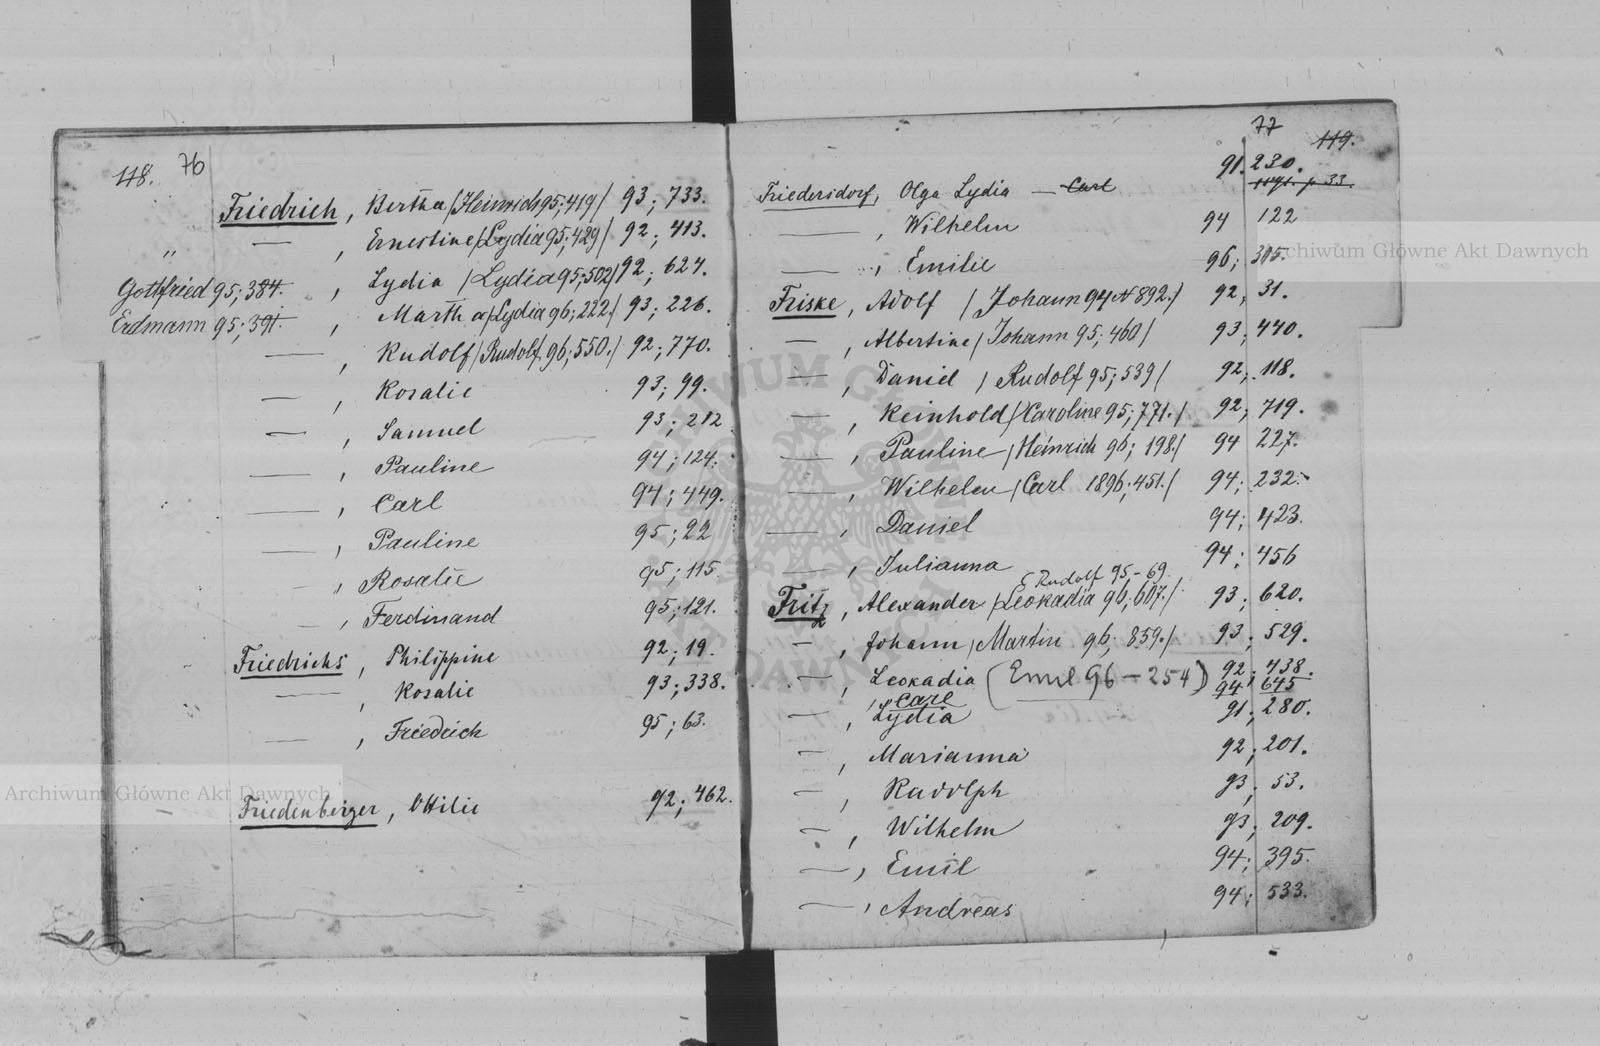 118. 76
Friedrich, Bertha /Heinrich 95; 419/ 93; 733.
" — , Ernestine /Lydia 95; 429/ 92; 413.
Gottfried 95; 384. , Lydia /Lydia 95; 502/ 92; 627.
Erdmann 95; 391. , Martha /Lydia 96; 222./ 93; 226.
— , Rudolf /Rudolf 96; 550./ 92; 770.
— , Rosalie 93; 99.
— , Samuel 93; 212
— , Pauline 94; 124.
— , Carl 94; 449.
— , Pauline 95; 22
— , Rosalie 95; 115.
— , Ferdinand 95; 121.
Friedrichs, Philippine 92; 19.
— , Rosalie 93; 338.
— , Friedrich 95; 63.
Friedenberger, Ottilie 92; 462.
77 119.
Friedersdorf, Olga Lydia — Carl 91. 230.
1191. p 33.
— , Wilhelm 94 122
— , Emilie 96; 395.
Friske, Adolf /Johann 94 N 892./ 92; 31.
— , Albertine /Johann 95; 460/ 93; 440.
— , Daniel /Rudolf 95; 539/ 92; 118.
— , Reinhold /Caroline 95; 771./ 92; 719.
— , Pauline /Heinrich 96; 198/ 94 227.
— , Wilhelm /Carl 1896; 451./ 94; 232.
— , Daniel 94; 423.
— , Julianna 94; 456
Rudolf 95-69
Fritz, Alexander /Leokadia 96; 607./ 93; 620.
— , Johann /Martin 96; 859./ 93; 529.
— , Leokadia (Emil 96-254) 92; 438.
, Carl 94 645
— , Lydia 91; 280.
— , Marianna 92; 201.
— , Rudolph 93; 53.
— , Wilhelm 93; 209.
— , Emil 94; 395.
— , Andreas 94; 533.
Archiwum Główne Akt Dawnych
Archiwum Główne Akt Dawnych
ARCHIWUM GŁÓWNE AKT DAWNYCH